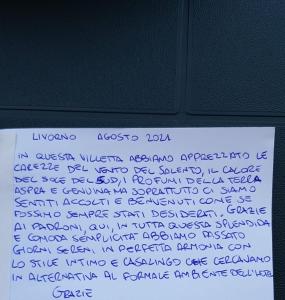 LIVORNO AGOSTO 2021
IN QUESTA VILLETTA ABBIAMO APPREZZATO LE
CAREZZE DEL VENTO DEL SALENTO, IL CALORE
DEL SOLE DEL SUD, I PROFUMI DELLA TERRA
ASPRA E GENUINA MA SOPRATTUTTO CI SIAMO
SENTITI ACCOLTI E BENVENUTI COME SE
FOSSIMO SEMPRE STATI DESIDERATI. GRAZIE
AI PADRONI, QUI, IN TUTTA QUESTA SPLENDIDA
E COMODA SEMPLICITÀ ABBIAMO PASSATO
GIORNI SERENI, IN PERFETTA ARMONIA CON
LO STILE INTIMO E CASALINGO CHE CERCAVAMO
IN ALTERNATIVA AL FORMALE AMBIENTE DELL'HOTEL
GRAZIE